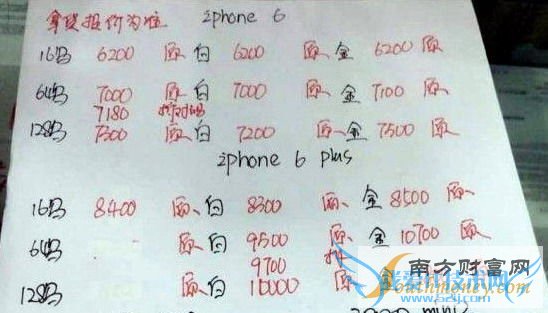 拿货报价为准 iphone 6
16黑 6200 原 白 6200 原 金 6200 原
64黑 7000 原 白 7000 原 金 7100 原
7180
128黑 7300 原 白 7200 原 金 7500 原
iphone 6 plus
16黑 8400 原、白 8300 原、金 8500 原
64黑 原 白 9500 原、金 10700 原
9700
128黑 原 白 10000 原 金
南方财富网
outhmoney.com
www.52ij.com